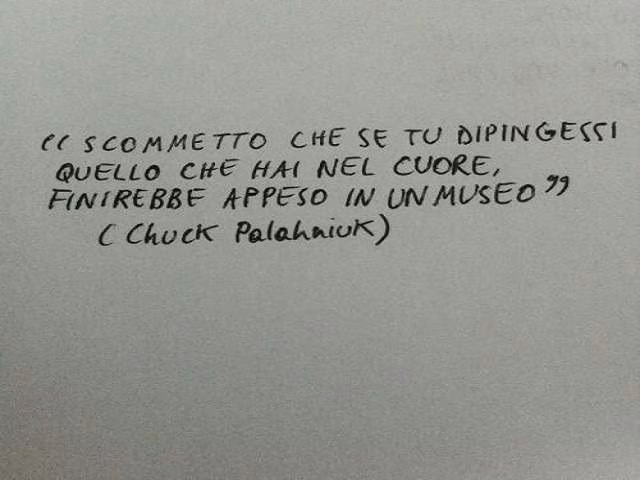 “SCOMMETTO CHE SE TU DIPINGESSI
QUELLO CHE HAI NEL CUORE,
FINIREBBE APPESO IN UN MUSEO”
(Chuck Palahniuk)